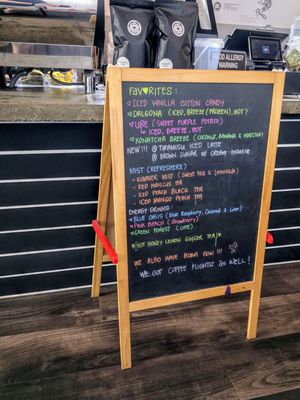 FOOD ALLERGY
WARNING
FAV♥RITES:
ICED VANILLA COTTON CANDY
DALGONA (ICED, BREEZE (FROZEN), HOT)
UBE (SWEET PURPLE POTATO)
↳ ICED, BREEZE, HOT
KONATCHA BREEZE (COCONUT, BANANA & MATCHA)
NEW!!! @ TIRAMISU ICED LATTE
@ BROWN SUGAR W/ CREAM
MIST (REFRESHERS)
- SUMMER MIST (SWEET TEA & LEMONADE)
- ICED HIBISCUS TEA
- ICED PEACH BLACK TEA
- ICED MANGO PEACH TEA
ENERGY DRINKS:
BLUE OASIS (Blue Raspberry, Coconut & Lime)
PINK BEACH (Strawberry)
GREEN FOREST (LIME)
*HOT HONEY LEMON GINGER TEA*
WE ALSO HAVE BOBA NOW!!!
WE GOT COFFEE FLIGHTS AS WELL!